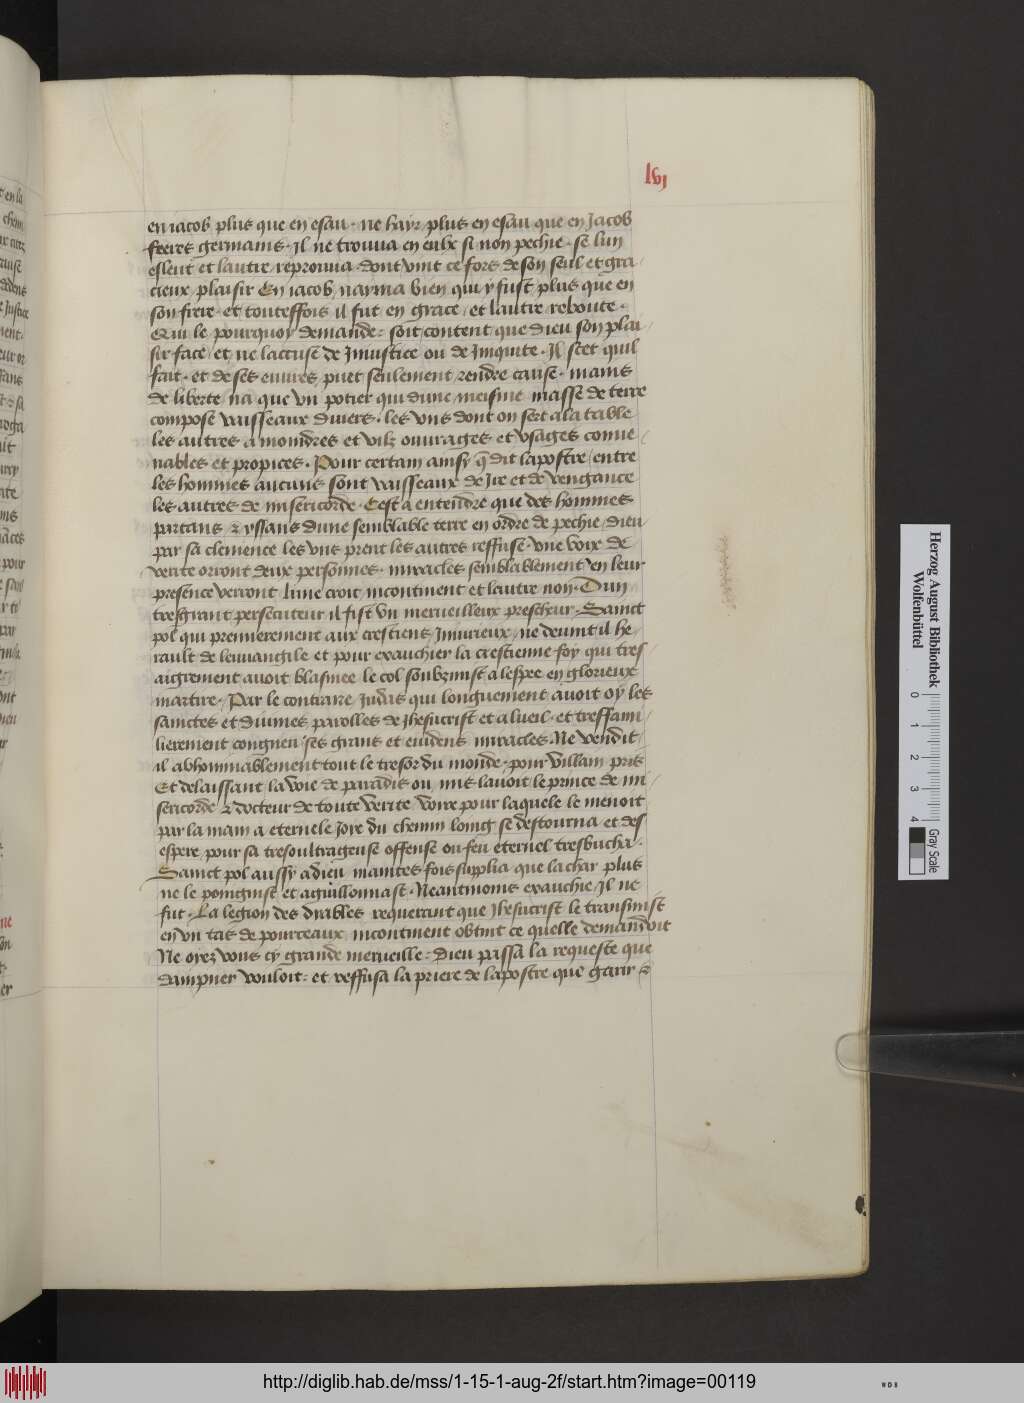 lvj
en iacob plus que en esau · ne hayr plus en esau que en Jacob
freres germains · Il ne trouua en eulx si non pechie · se lun
esleut et lautre reprouua · dont vint ce fors de son seul et gra
cieux plaisir En iacob nayma bien qui y fust plus que en
son frere · et toutesfois il fut en grace et lautre reboute ·
Qui le pourquoy demande : soit content que dieu son plai
sir face et ne laccuse de Iniustice ou de Iniquite · Il scet quil
fait · et de ses euures puet seulement rendre cause · mains
de liberte na que vn potier qui dune meisme masse de terre
compose vaisseaux diuers · les vns dont on sert a la table
les autres a moindres et vilz ouurages et vsages conue
nables et propices · Pour certain ainsy q̄ dit lapostre entre
les hommes aucuns sont vaisseaux de Ire et de vengance
les autres de misericorde · Cest a entendre que des hommes
partans & yssans dune semblable terre en ordre de pechie dieu
par sa clemence les vns prent les autres reffuse · vne voix de
verite orront deux personnes · miracles semblablement en leur
presence verront lune croit incontinent et lautre non · Dun
tresgrant persecuteur il fist vn merueilleux prescheur · Sainct
pol qui premierement aux crestiens Iniurieux ne deuint il he
rault de leuuangile et pour exauchier la crestienne foy qui tres
aigrement auoit blasmee le col soubzmist a lespee en glorieux
martire · Par le contraire Iudas qui longuement auoit oy les
sainctes et diuines parolles de Ihesucrist et a lueil · et tresfami
lierement congneu ses grans et euidens miracles · Ne vendit
il abhominablement tout le tresor du monde · pour villain pris
Et delaissant la voie de paradis ou mis lauoit le prince de mi
sericorde & docteur de toute verite voire pour laquele le menoit
par la main a eternele Ioye du chemin loing se destourna et des
espere pour sa tresoultrageuse offense ou feu eternel tresbucha ·
Sainct pol aussy a dieu maintes fois supplia que la char plus
ne le poingnist et aguillonnast · Neantmoins exauchie Il ne
fut · La legion des diables requerant que Ihesucrist le transmist
en vn tas de pourceaux incontinent obtint ce quelle demandoit
Ne oyez vous cy grande merueille : Dieu passa la requeste que
dampner vouloit : et reffusa la priere de lapostre que garir &
Herzog August Bibliothek
Wolfenbüttel
0 1 2 3 4
Gray Scale
http://diglib.hab.de/mss/1-15-1-aug-2f/start.htm?image=00119